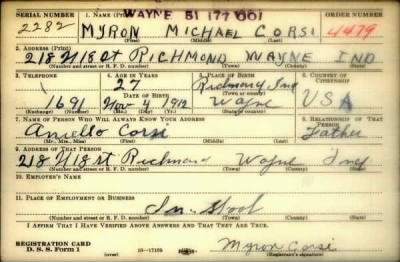 WAYNE 51 177 001
SERIAL NUMBER 1. NAME (Print) ORDER NUMBER
2282 MYRON MICHAEL CORSI 4479
2. ADDRESS (Print)
218 N 18 ST RICHMOND WAYNE IND
(Number and street or R. F. D. number) (Town) (County) (State)
3. TELEPHONE 4. AGE IN YEARS 5. PLACE OF BIRTH 6. COUNTRY OF CITIZENSHIP
27 Richmond Ind
DATE OF BIRTH (Town or county)
1691 Nov 4 1912 Wayne USA
(Exchange) (Number) (Mo.) (Day) (Yr.) (State or country)
7. NAME OF PERSON WHO WILL ALWAYS KNOW YOUR ADDRESS 8. RELATIONSHIP OF THAT PERSON
Aniello Corsi Father
(Mr., Mrs., Miss) (First) (Middle) (Last)
9. ADDRESS OF THAT PERSON
218 N 18 St Richmond Wayne Ind
(Number and street or R. F. D. number) (Town) (County) (State)
10. EMPLOYER'S NAME
11. PLACE OF EMPLOYMENT OR BUSINESS
(Number and street or R. F. D. number) (Town) (County) (State)
I AFFIRM THAT I HAVE VERIFIED ABOVE ANSWERS AND THAT THEY ARE TRUE.
REGISTRATION CARD
D. S. S. Form 1 16—17105 Myron Corsi
(Registrant's signature)